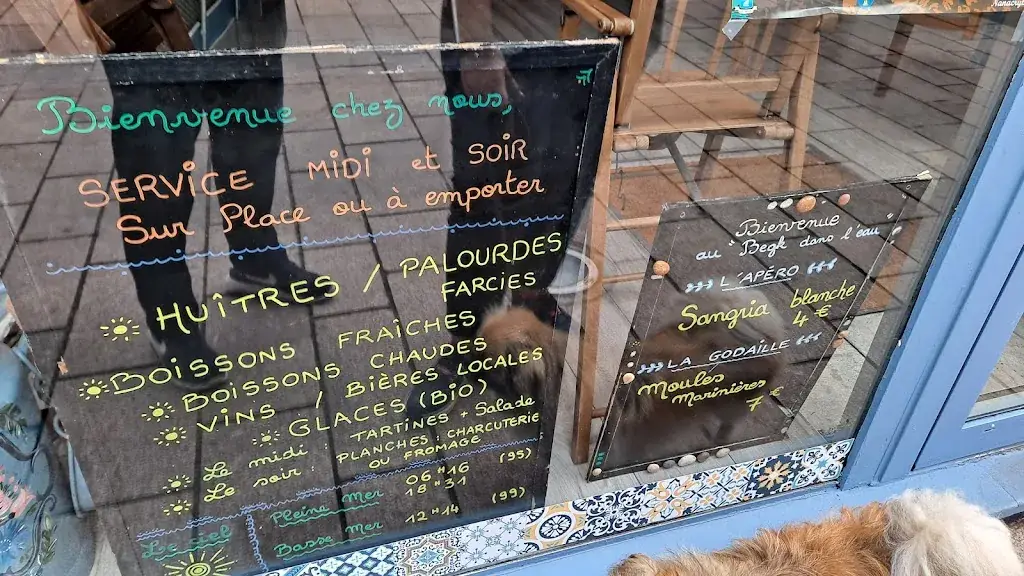 Bienvenue chez nous,
SERVICE MIDI et SOIR
Sur Place ou à emporter
HUÎTRES / PALOURDES
FARCIES
BOISSONS FRAÎCHES
BOISSONS CHAUDES
VINS / BIÈRES LOCALES
GLACES (BIO)
Le midi TARTINES + Salade
Le soir : PLANCHES : CHARCUTERIE
OU FROMAGE
Pleine mer 06"16 (95)
18"31
Basse mer 12"14 (99)
Bienvenue
au "Begk dans l'eau"
L'APÉRO
Sangria blanche
4 €
LA GODAILLE
Moules
Marinières
7 €